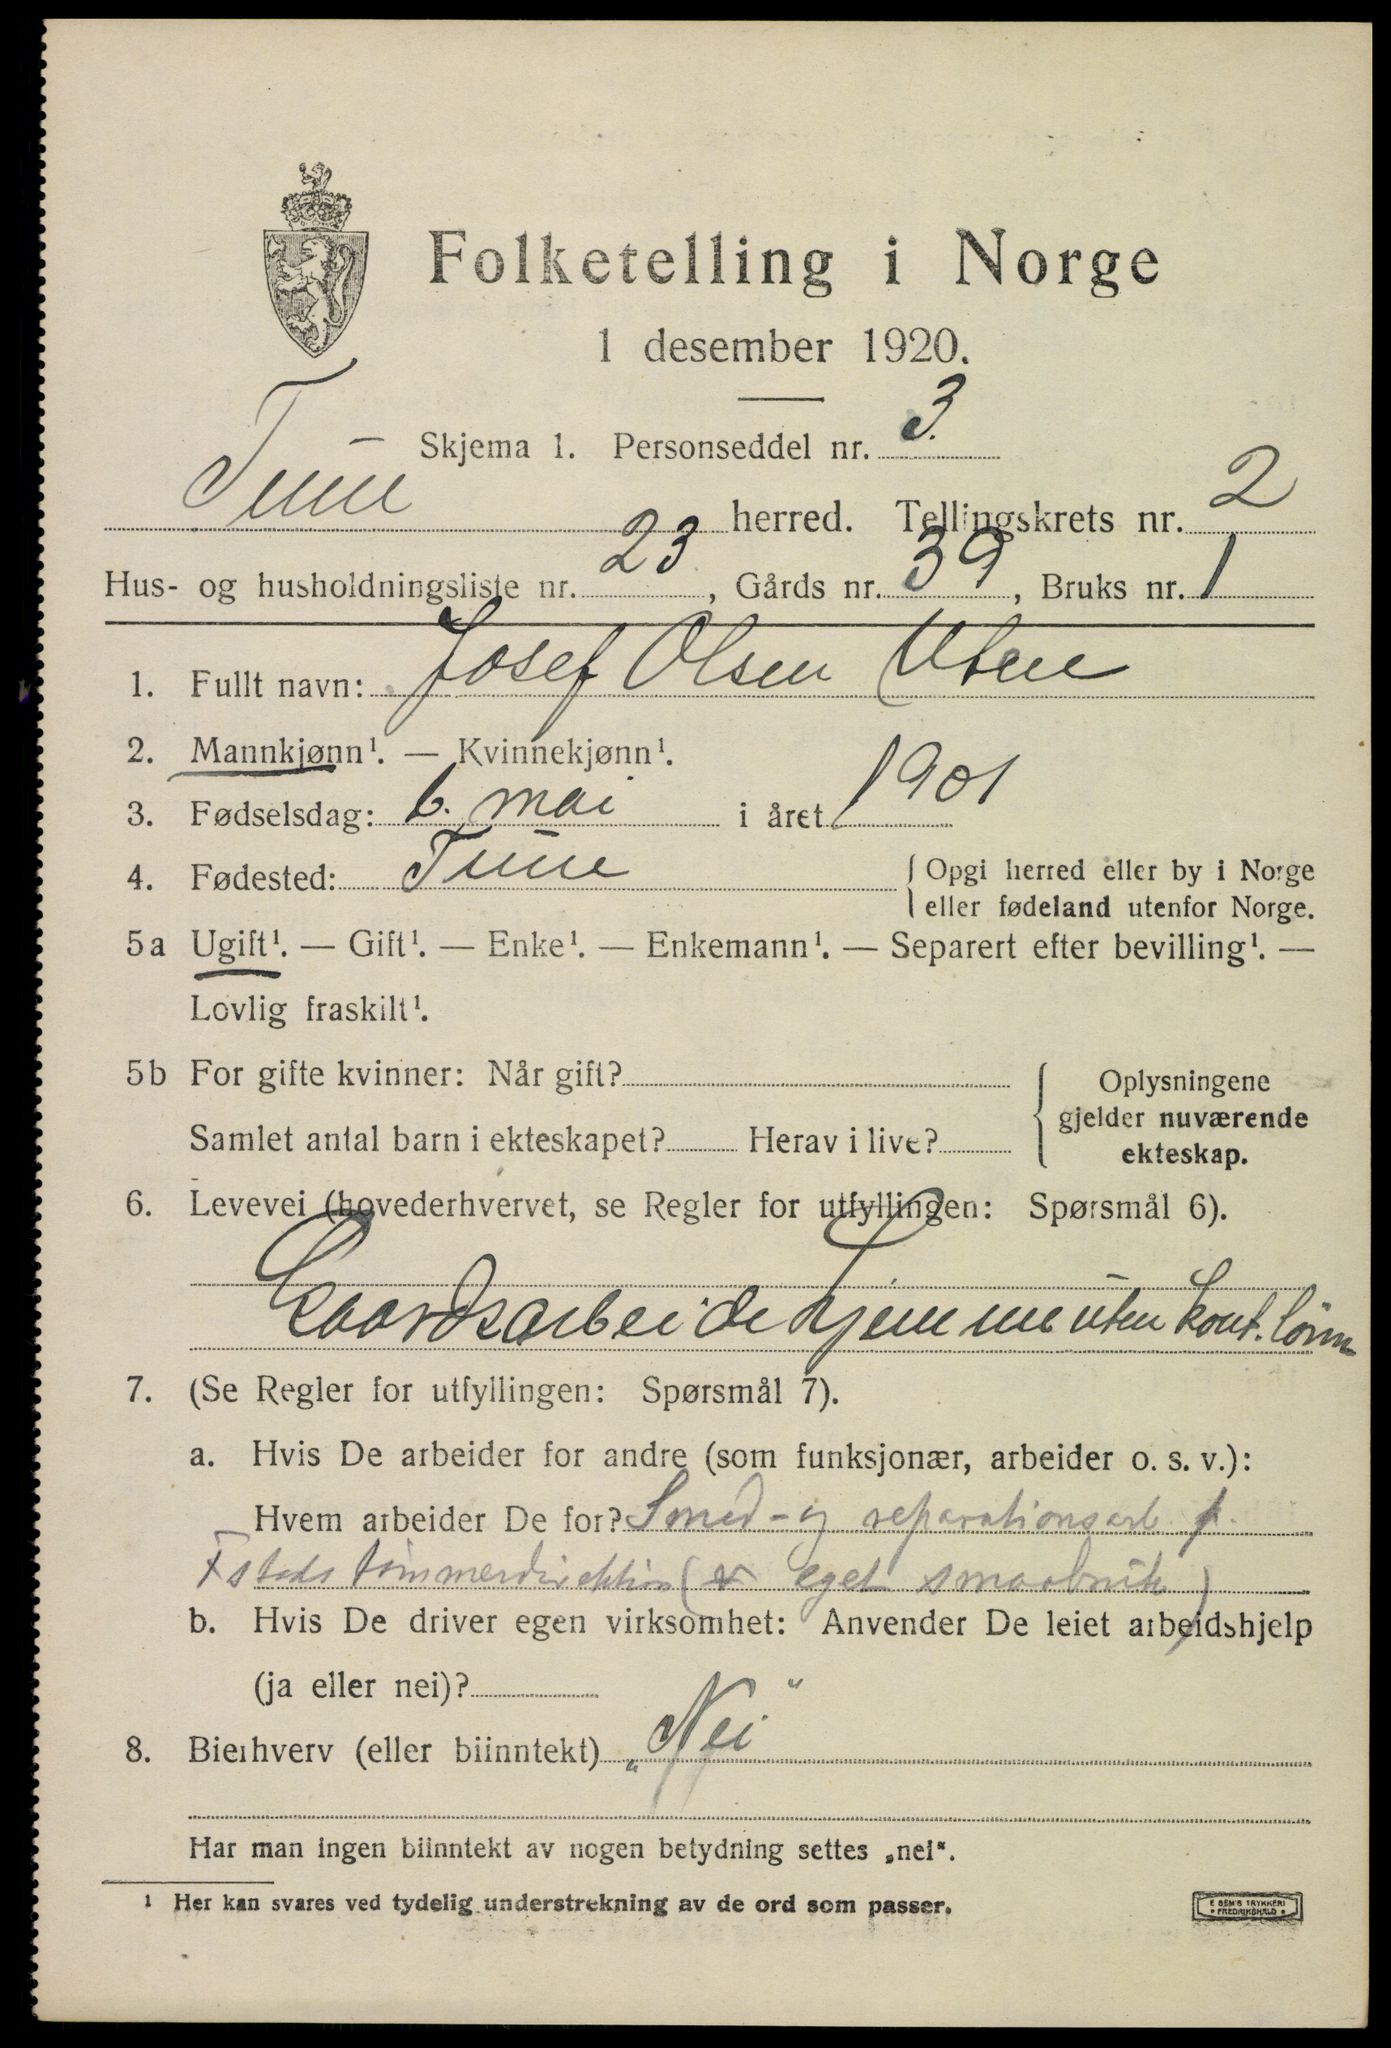 Folketelling i Norge
1 desember 1920.
Skjema 1. Personseddel nr. 3.
Tune herred. Tellingskrets nr. 2
Hus- og husholdningsliste nr. 23, Gårds nr. 39, Bruks nr. 1
1. Fullt navn: Josef Olsen Utne
2. Mannkjønn¹. — Kvinnekjønn¹.
3. Fødselsdag: 6. mai i året 1901
4. Fødested: Tune { Opgi herred eller by i Norge
eller fødeland utenfor Norge.
5a Ugift¹. — Gift¹. — Enke¹. — Enkemann¹. — Separert efter bevilling¹. —
Lovlig fraskilt¹.
5b For gifte kvinner: Når gift? Oplysningene
gjelder nuværende
Samlet antal barn i ekteskapet? Herav i live?
ekteskap.
6. Levevei (hovederhvervet, se Regler for utfyllingen: Spørsmål 6).
Gaardsarbeide hjemme uten kont. lønn
7. (Se Regler for utfyllingen: Spørsmål 7).
a. Hvis De arbeider for andre (som funksjonær, arbeider o. s. v.):
Hvem arbeider De for? Smed- og reparationsarb f.
Fstads tømmerdirektion ( eget smaabruk)
b. Hvis De driver egen virksomhet: Anvender De leiet arbeidshjelp
(ja eller nei)?
8. Bierhverv (eller biinntekt) „Nei"
Har man ingen biinntekt av nogen betydning settes „nei".
¹ Her kan svares ved tydelig understrekning av de ord som passer.
E SEM'S TRYKKERI
FREDRIKSHALD